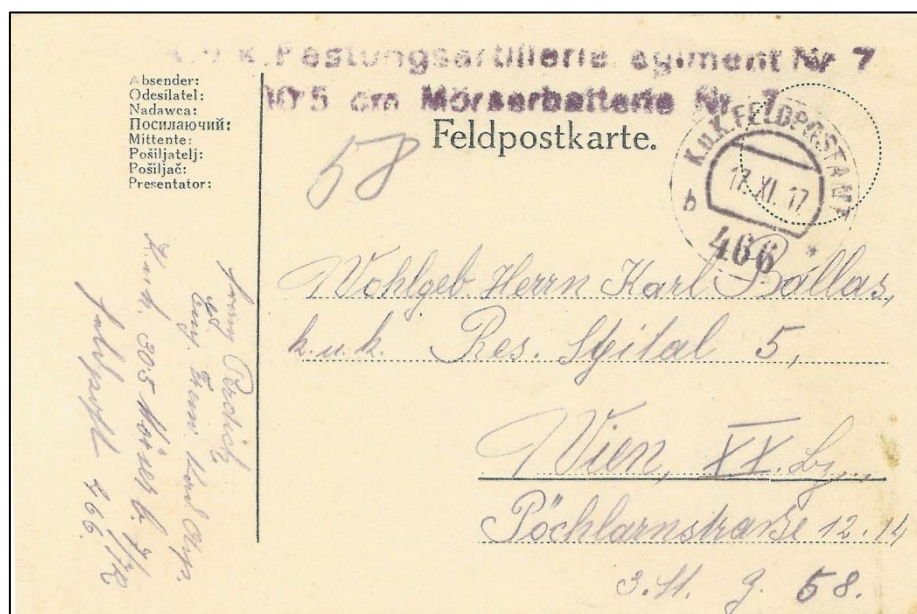 k.u.k. Festungsartillerie egiment Nr 7
30'5 cm Mörserbatterie Nr. 7
Absender:
Odesílatel:
Nadawca:
Посилаючий:
Mittente:
Pošiljatelj:
Pošiljač:
Presentator:
Feldpostkarte.
58
K.u.K. FELDPOSTAMT
b
17. XI. 17
466
*
Wohlgeb. Herrn Karl Ballas,
k.u.k. Res. Spital 5,
Wien, XX. Bz.,
Pöchlarnstraße 12.14
3. St. Z. 58.
K.u.k. 305 Mörser b.
Feldpost 466.